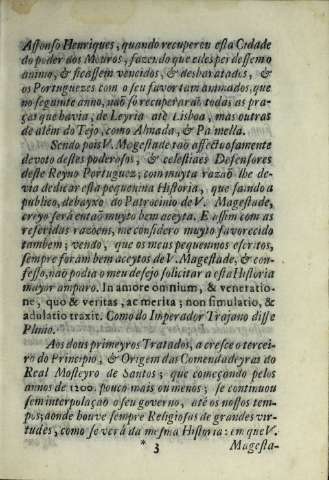 Affonso Henriques, quando recuperou esta Cidade
do poder dos Mouros, fazendo que elles perdessem o
animo, & ficassem vencidos, & desbaratados, &
os Portuguezes com o seu favor tam animados, que
no seguinte anno, naõ só recuperaraõ todas as pra-
ças que havia, de Leyria até Lisboa, mas outras
de além do Tejo, como Almada, & Pamella.
Sendo pois V. Magestade taõ affectuosamente
devoto destes poderosos, & celestiaes Defensores
deste Reyno Portuguez; com muyta razaõ lhe de-
via dedicar esta pequenina Historia, que saindo a
publico, debayxo do Patrocinio de V. Magestade,
creyo será entaõ muyto bem aceyta. E assim com as
referidas razoens, me considero muyto favorecido
tambem; vendo, que os meus pequeninos escritos,
sempre foram bem aceytos de V. Magestade, & con-
fesso, naõ podia o meu desejo solicitar a esta Historia
mayor amparo. In amore omnium, & veneratio-
ne, quo & veritas, ac merita; non simulatio, &
adulatio traxit. Como do Imperador Trajano disse
Plinio.
Aos dous primeyros Tratados, a cresce o tercei-
ro do Principio, & Origem das Comendadeyras do
Real Mosteyro de Santos; que começando pelos
annos de 1200. pouco mais ou menos; se continuou
sem interpolaçaõ o seu governo, até os nossos tem-
pos; aonde houve sempre Religiosas de grandes vir-
tudes, como se verá da mesma Historia: em que V.
* 3 Magesta-